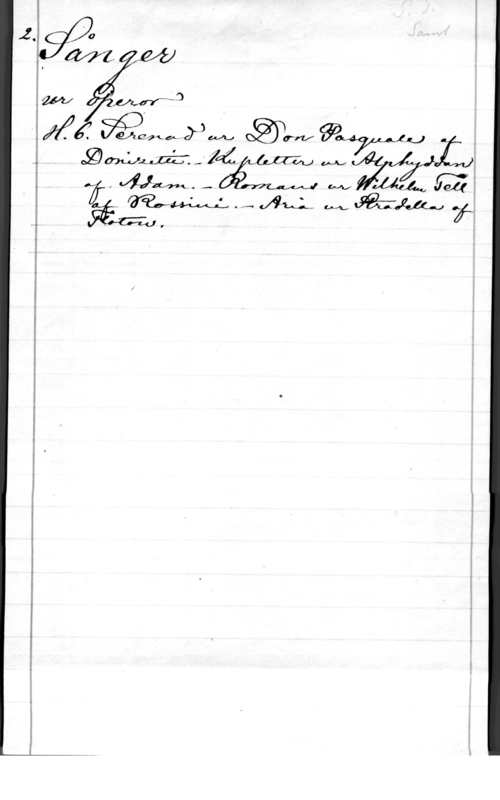 S. J.
Saml
2. Sånger
ur Operor
H. 6. Serenad ur Don Pasquale af
Donizetti. - Kupletter ur Alphyddan
af Adam. - Romans ur Wilhelm Tell
af Rossini. - Aria ur Stradella af
Flotow.